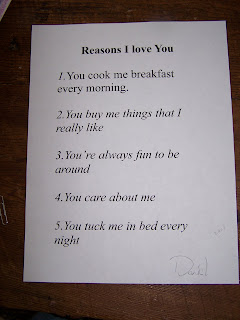 Reasons I love You
1.You cook me breakfast
every morning.
2.You buy me things that I
really like
3.You're always fun to be
around
4.You care about me
5.You tuck me in bed every
night